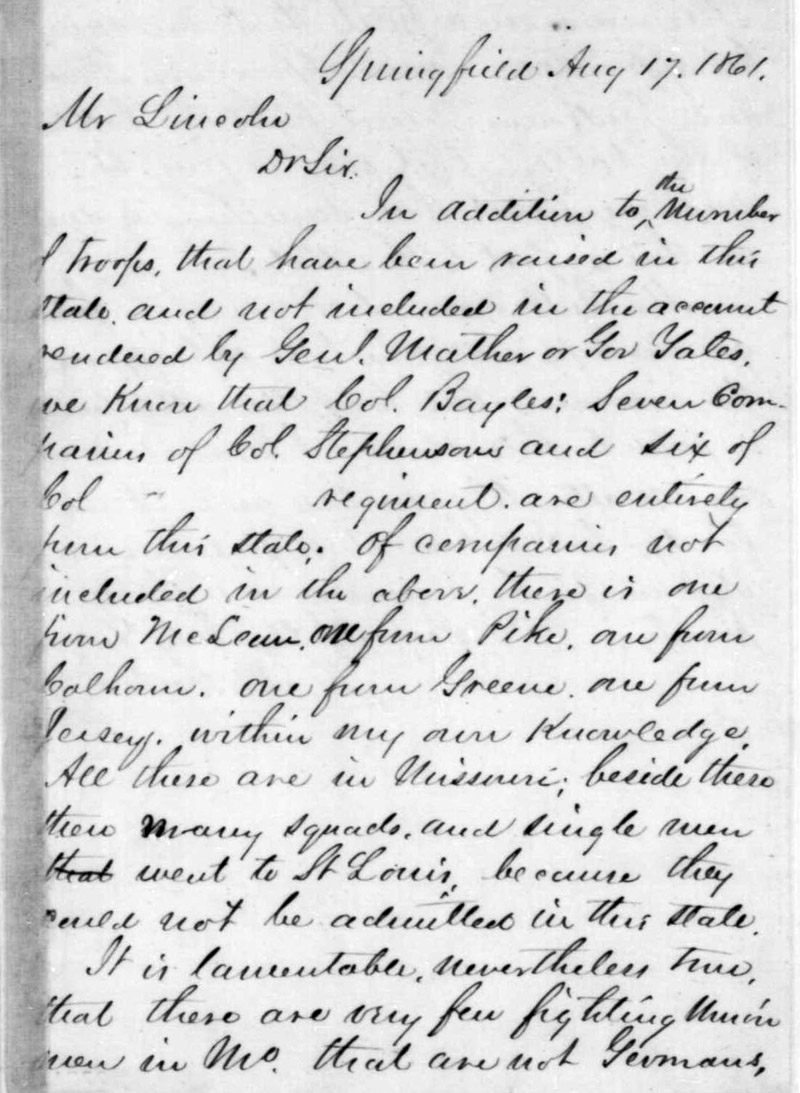 Springfield Aug 17. 1861.
Mr Lincoln
Dr Sir.
the
In addition to, Number
f troops, that have been raised in this
state. and not included in the account
rendered by Genl. Mather or Gov Yates.
we Know that Col. Bayles; Seven Com-
panies of Col. Stephensons and six of
Col " regiment. are entirely
from this state. Of companies not
included in the above. there is one
from McLean. one from Pike. one from
Calhoun. one from Greene. one from
Jersey. within my own Knowledge.
All these are in Missouri; beside these
there many squads. and single men
that went to St Louis, because they
could not be admitted in this state.
It is lamentable, nevertheless true,
that there are very few fighting Union
men in Mo. that are not Germans,